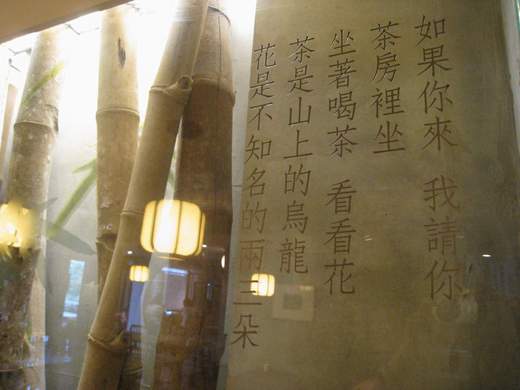 如果你來 我請你
茶房裡坐
坐著喝茶 看看花
茶是山上的烏龍
花是不知名的兩三朵